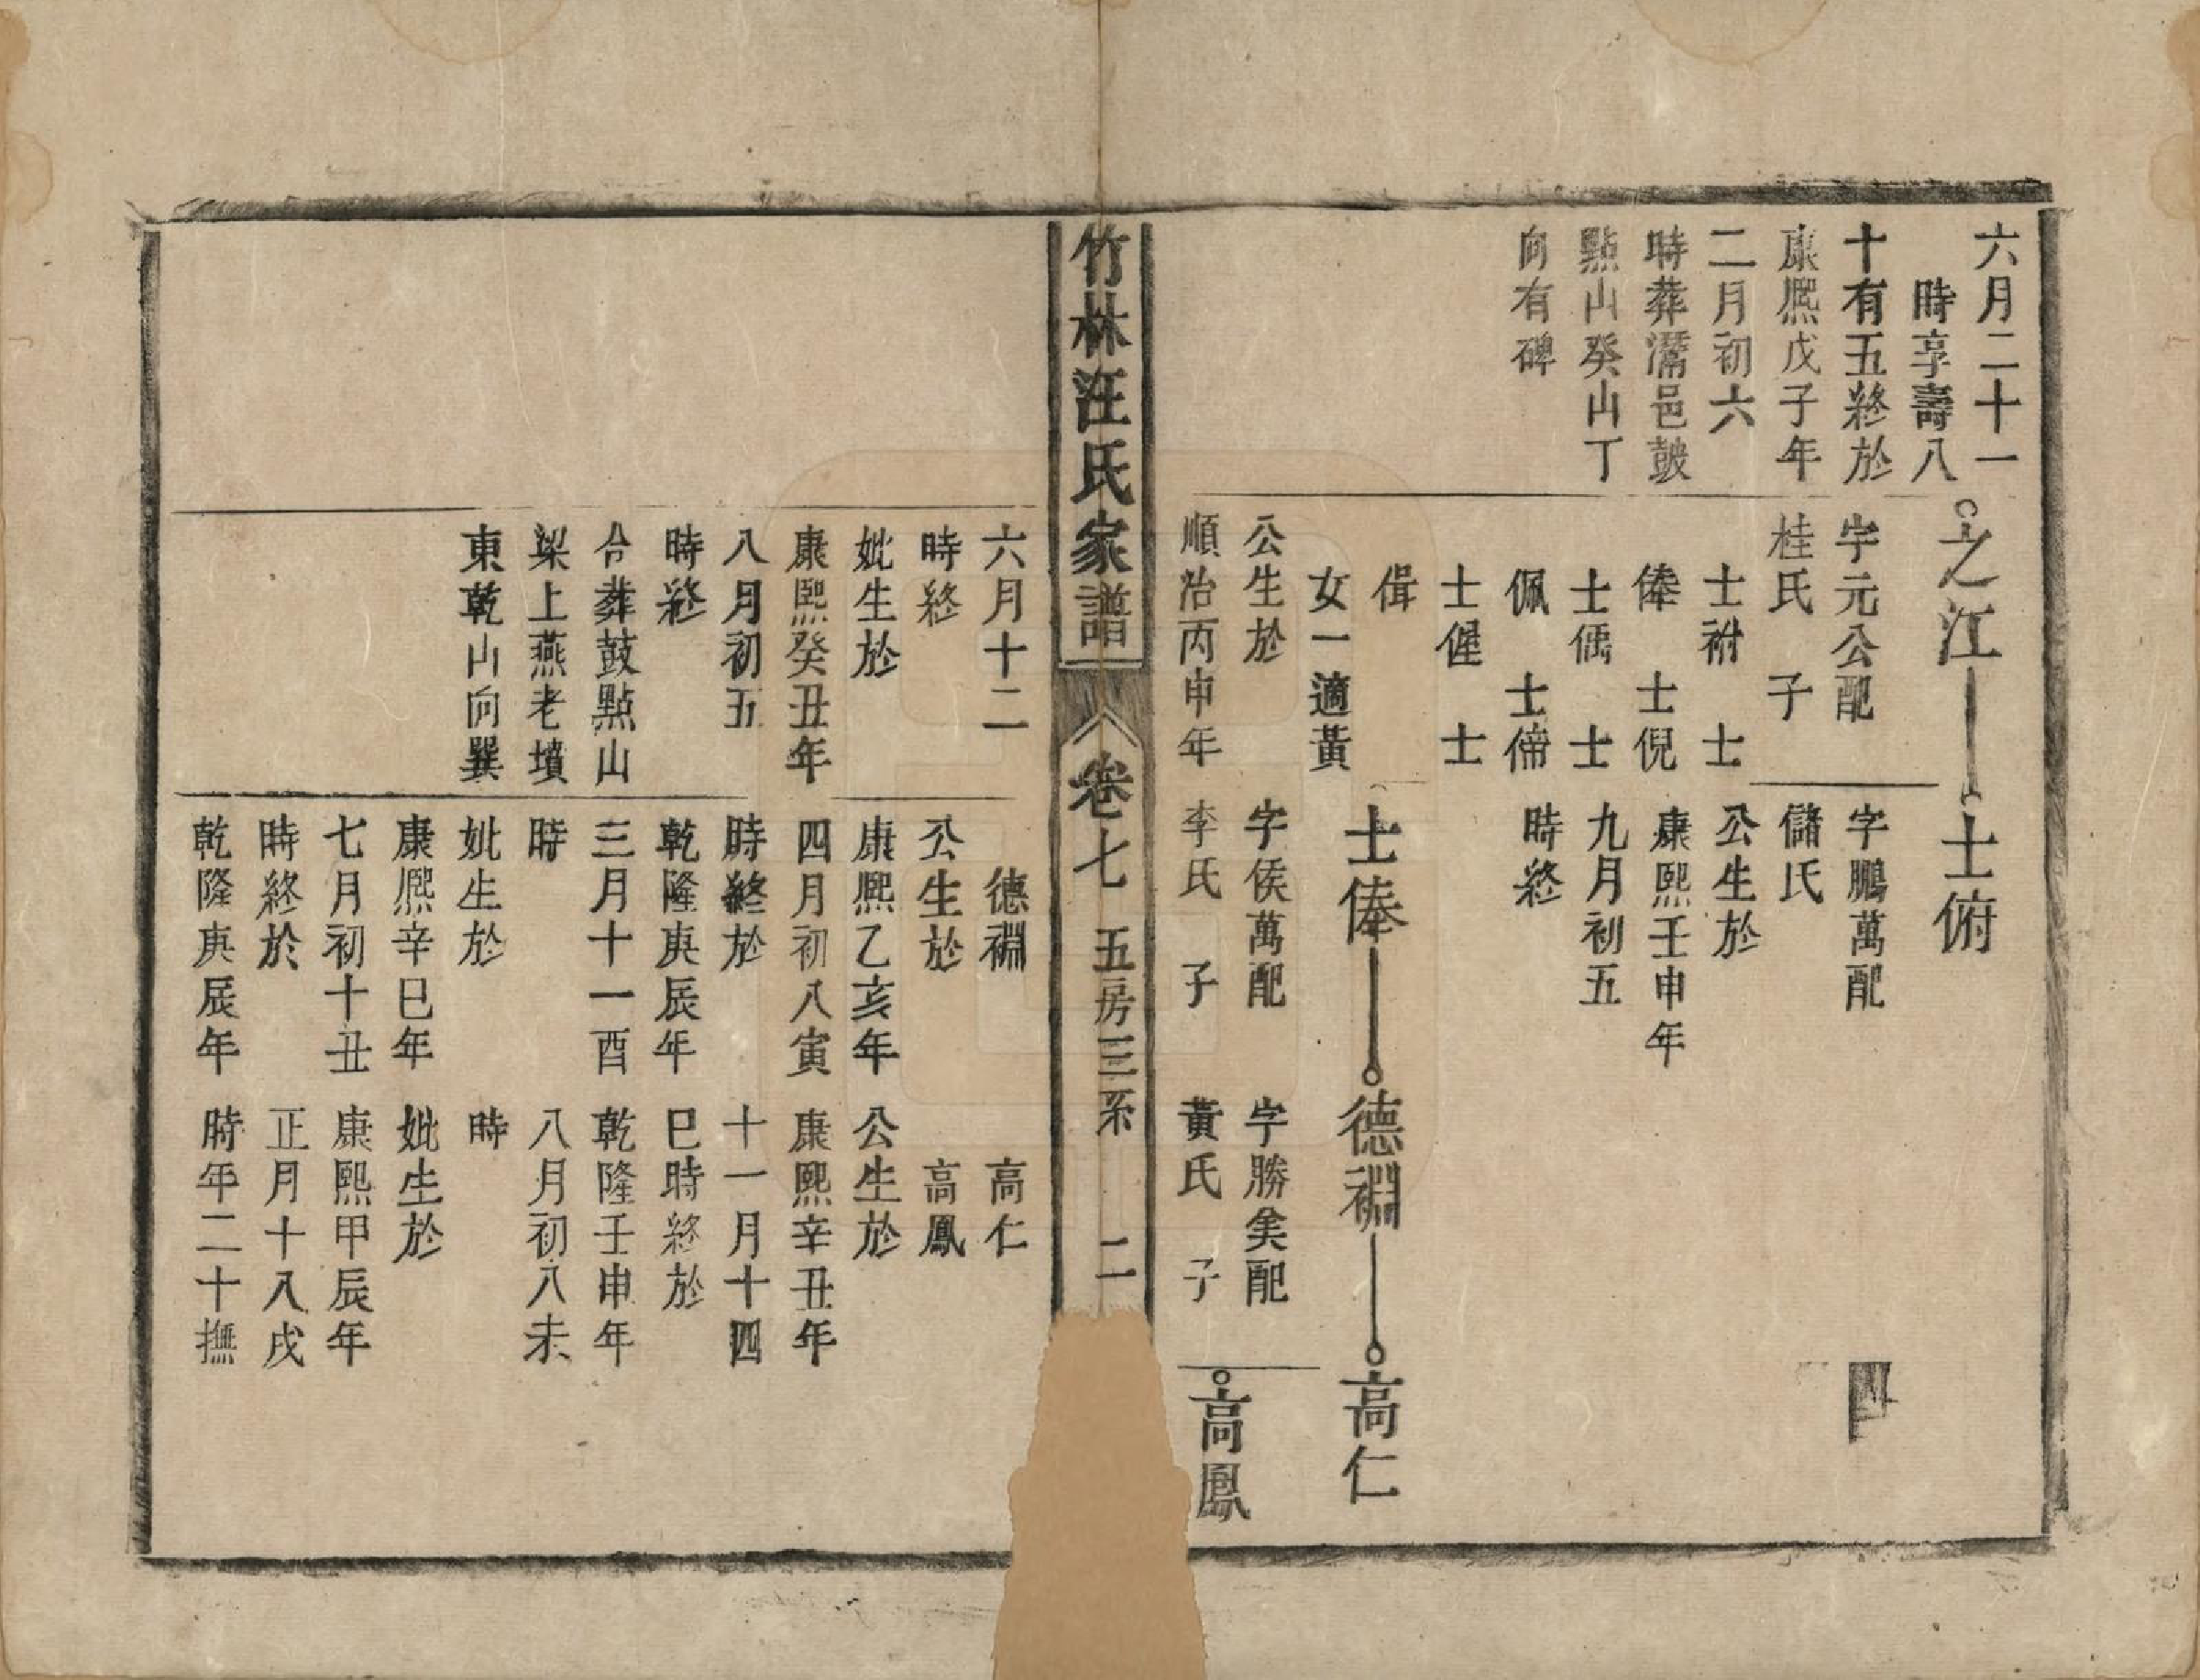 六月二十一
時享壽八
十有五終於
康熙戊子年
二月初六
時葬灊邑皷
點山癸山丁
向有碑
之江
字元公配
桂氏 子
士祔 士
俸 士倪
士偊 士
佩 士偙
士偓 士
偮
女一適黃
公生於
順治丙申年
士俯
字鵬萬配
儲氏
公生於
康熙壬申年
九月初五
時終
士俸
字侯萬配
李氏 子
德裫
字勝矣配
黃氏 子
高仁
高鳳
四
竹林汪氏家譜
卷七 五房三系 二
六月十二
時終
妣生於
康熙癸丑年
八月初五
時終
合葬鼓點山
梁上燕老墳
東乾山向巽
德裫
公生於
康熙乙亥年
四月初八寅
時終於
乾隆庚辰年
三月十一酉
時
妣生於
康熙辛巳年
七月初十丑
時終於
乾隆庚辰年
高仁
高鳳
公生於
康熙辛丑年
十一月十四
巳時終於
乾隆壬申年
八月初八未
時
妣生於
康熙甲辰年
正月十八戌
時年二十撫